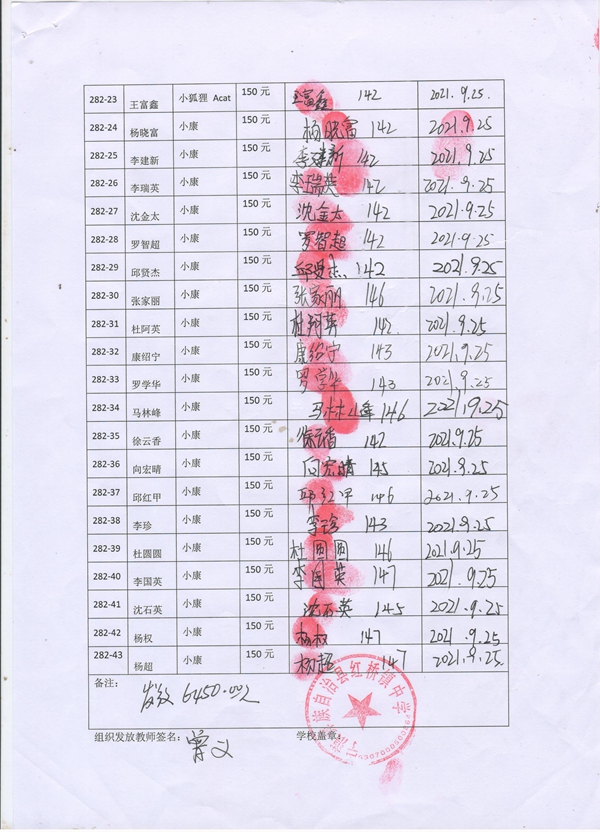 282-23 王富鑫 小狐狸 Acat 150 元 王富鑫 142 2021.9.25.
282-24 杨晓富 小康 150 元 杨晓富 142 2021.9.25
282-25 李建新 小康 150 元 李建新 142 2021.9.25
282-26 李瑞英 小康 150 元 李瑞英 142 2021.9.25
282-27 沈金太 小康 150 元 沈金太 142 2021.9.25
282-28 罗智超 小康 150 元 罗智超 142 2021.9.25
282-29 邱贤杰 小康 150 元 邱贤杰 142 2021.9.25
282-30 张家丽 小康 150 元 张家丽 146 2021.9.25
282-31 杜阿英 小康 150 元 杜阿英 142 2021.9.25
282-32 康绍宁 小康 150 元 康绍宁 143 2021.9.25
282-33 罗学华 小康 150 元 罗学华 143 2021.9.25
282-34 马林峰 小康 150 元 马林峰 146 2021.9.25
282-35 徐云香 小康 150 元 徐云香 142 2021.9.25
282-36 向宏晴 小康 150 元 向宏晴 145 2021.9.25
282-37 邱红甲 小康 150 元 邱红甲 146 2021.9.25
282-38 李珍 小康 150 元 李珍 143 2021.9.25
282-39 杜圆圆 小康 150 元 杜圆圆 146 2021.9.25
282-40 李国英 小康 150 元 李国英 147 2021.9.25
282-41 沈石英 小康 150 元 沈石英 145 2021.9.25
282-42 杨权 小康 150 元 杨权 147 2021.9.25
282-43 杨超 小康 150 元 杨超 147 2021.9.25.
备注：
发放 6450.00元
组织发放教师签名： 学校盖章：
族自治县红桥镇中学